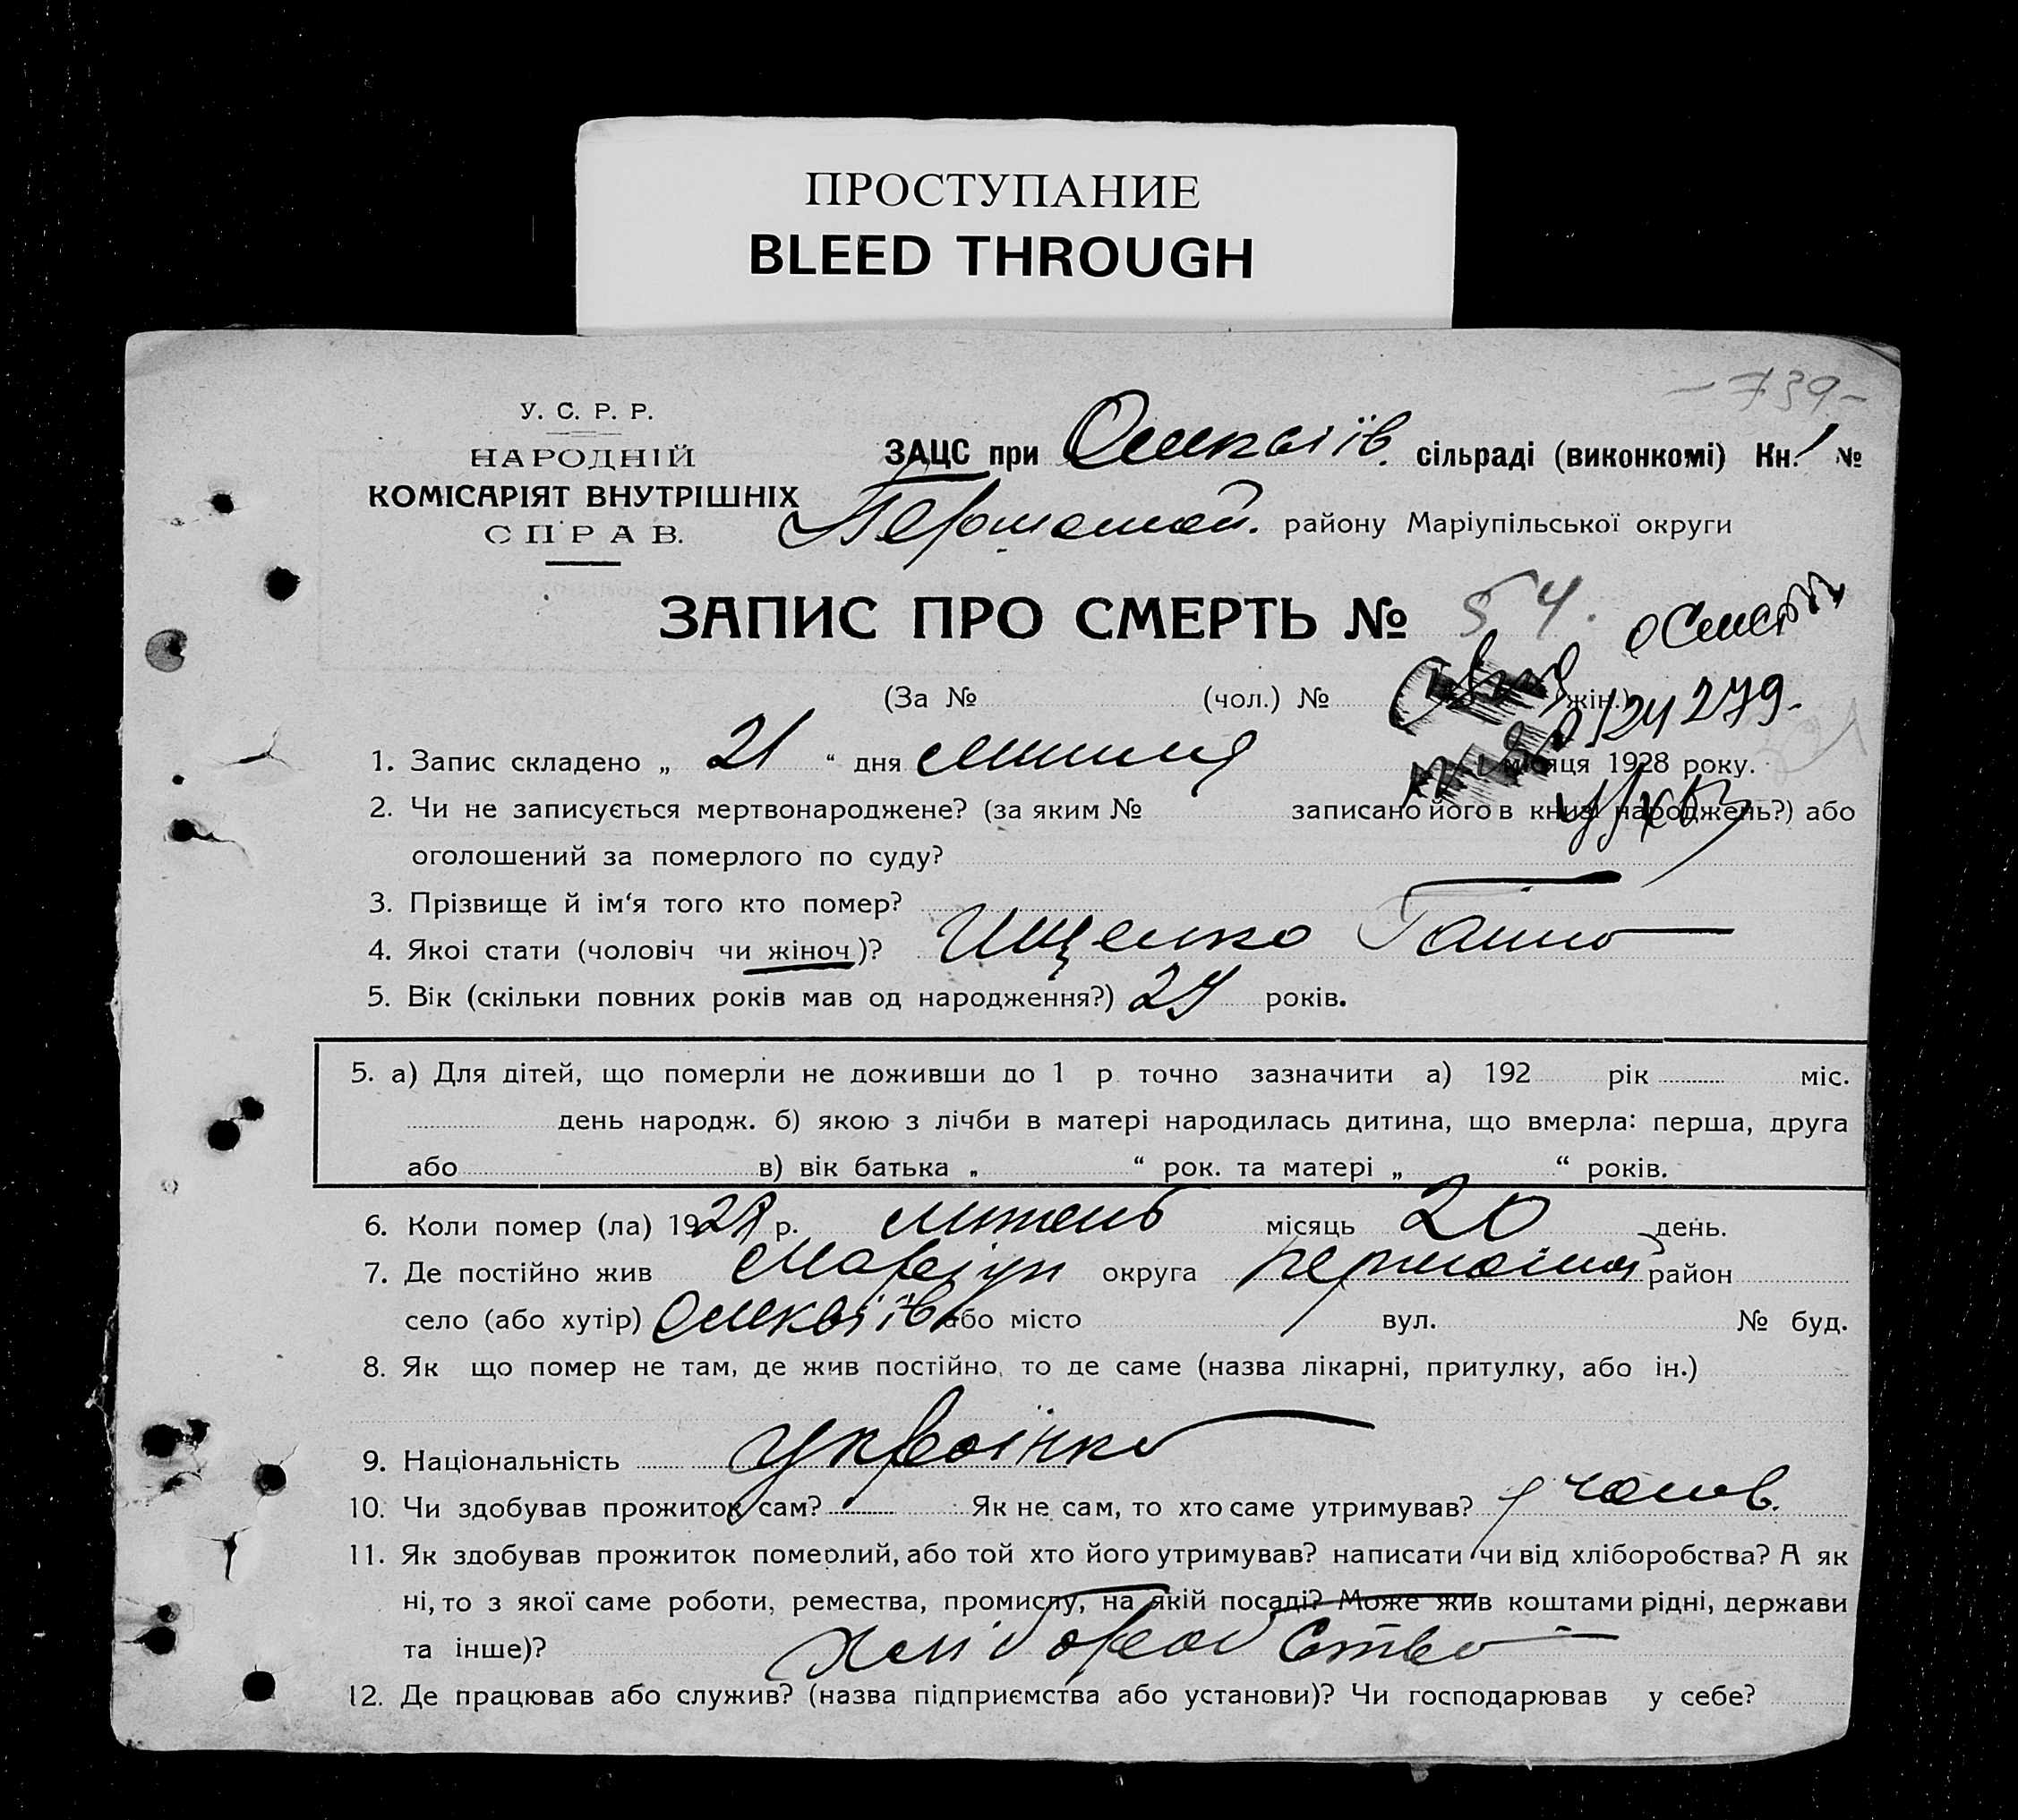 ПРОСТУПАНИЕ
BLEED THROUGH
-739-
У. С. Р. Р.
НАРОДНІЙ
КОМІСАРІЯТ ВНУТРІШНІХ
СПРАВ.
ЗАЦС при Олексіїв. сільраді (виконкомі) Кн. 1 №
Першотмай. району Маріупільської округи
ЗАПИС ПРО СМЕРТЬ № 54.
о смерти
(За № (чол.) № жін.)
279.
1. Запис складено „ 21 “ дня липня місяця 1928 року.
2. Чи не записується мертвонароджене? (за яким № записано його в книзі народжень?) або
оголошений за померлого по суду?
3. Прізвище й ім‘я того кто помер?
Ищенко Ганна
4. Якоі стати (чоловіч чи жіноч)?
5. Вік (скільки повних років мав од народження?) 24 років.
5. а) Для дітей, що померли не доживши до 1 р. точно зазначити а) 192 рік міс.
день народж. б) якою з лічби в матері народилась дитина, що вмерла: перша, друга
або в) вік батька „ “ рок. та матері „ “ років.
6. Коли помер (ла) 1928 р. липень місяць 20 день.
7. Де постійно жив Маріуп округа Першотмай район
село (або хутір) Олексіїв або місто вул. № буд.
8. Як що помер не там, де жив постійно, то де саме (назва лікарні, притулку, або ін.)
9. Національність Українка
10. Чи здобував прожиток сам? Як не сам, то хто саме утримував? чолов.
11. Як здобував прожиток померлий, або той хто його утримував? написати чи від хліборобства? А як
ні, то з якої саме роботи, ремества, промислу, на якій посаді? Може жив коштами рідні, держави
та інше)? Хліборобство
12. Де працював або служив? (назва підприємства або установи)? Чи господарював у себе?